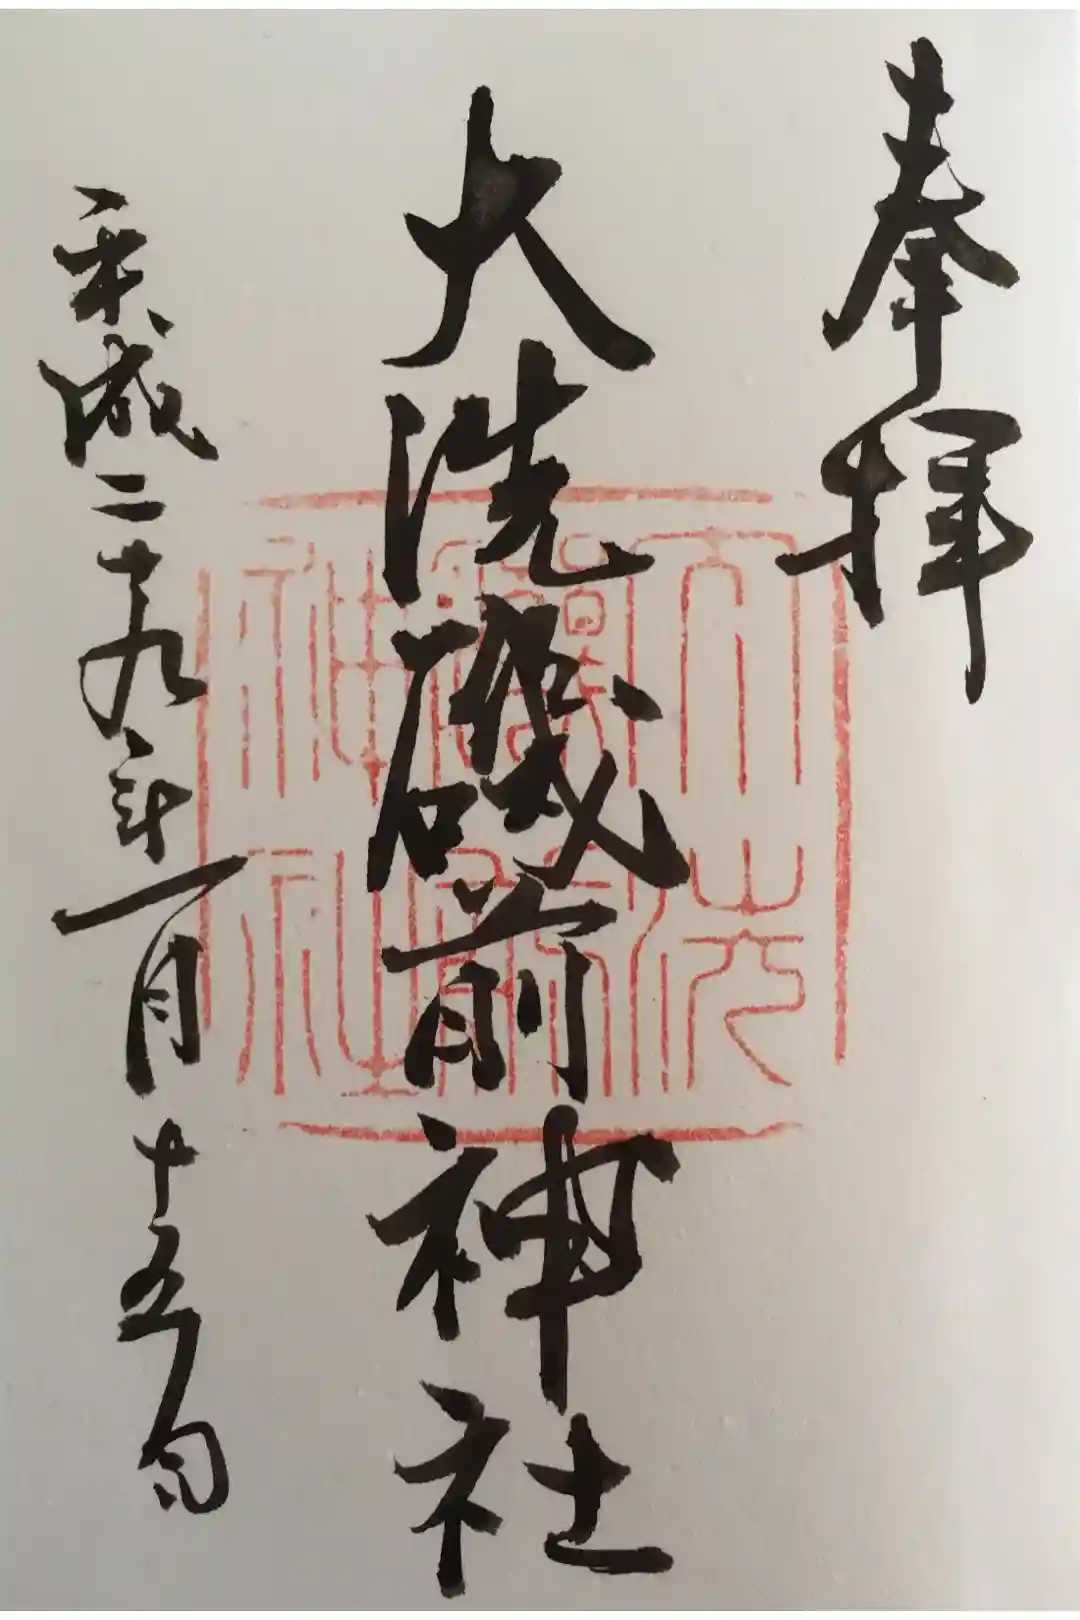 奉拝
大洗磯前神社
平成二十九年一月十五日
大洗
磯前
神社